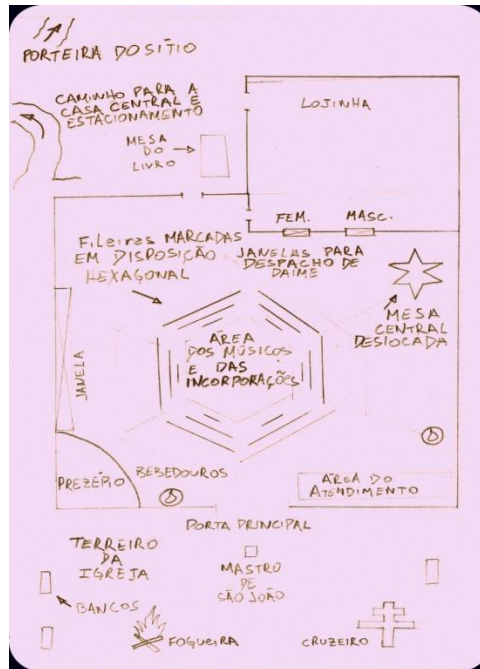 PORTEIRA DO SÍTIO
CAMINHO PARA A
CASA CENTRAL E
ESTACIONAMENTO
LOJINHA
MESA
DO
LIVRO
FEM.
MASC.
FILEIRAS MARCADAS
EM DISPOSIÇÃO
HEXAGONAL
JANELAS PARA
DESPACHO DE
DAIME
MESA
CENTRAL
DESLOCADA
ÁREA
DOS MÚSICOS
E DAS
INCORPORAÇÕES
JANELA
PREZÉPIO
BEBEDOUROS
ÁREA DO
ATENDIMENTO
PORTA PRINCIPAL
TERREIRO
DA
IGREJA
MASTRO
DE
SÃO JOÃO
BANCOS
FOGUEIRA
CRUZEIRO